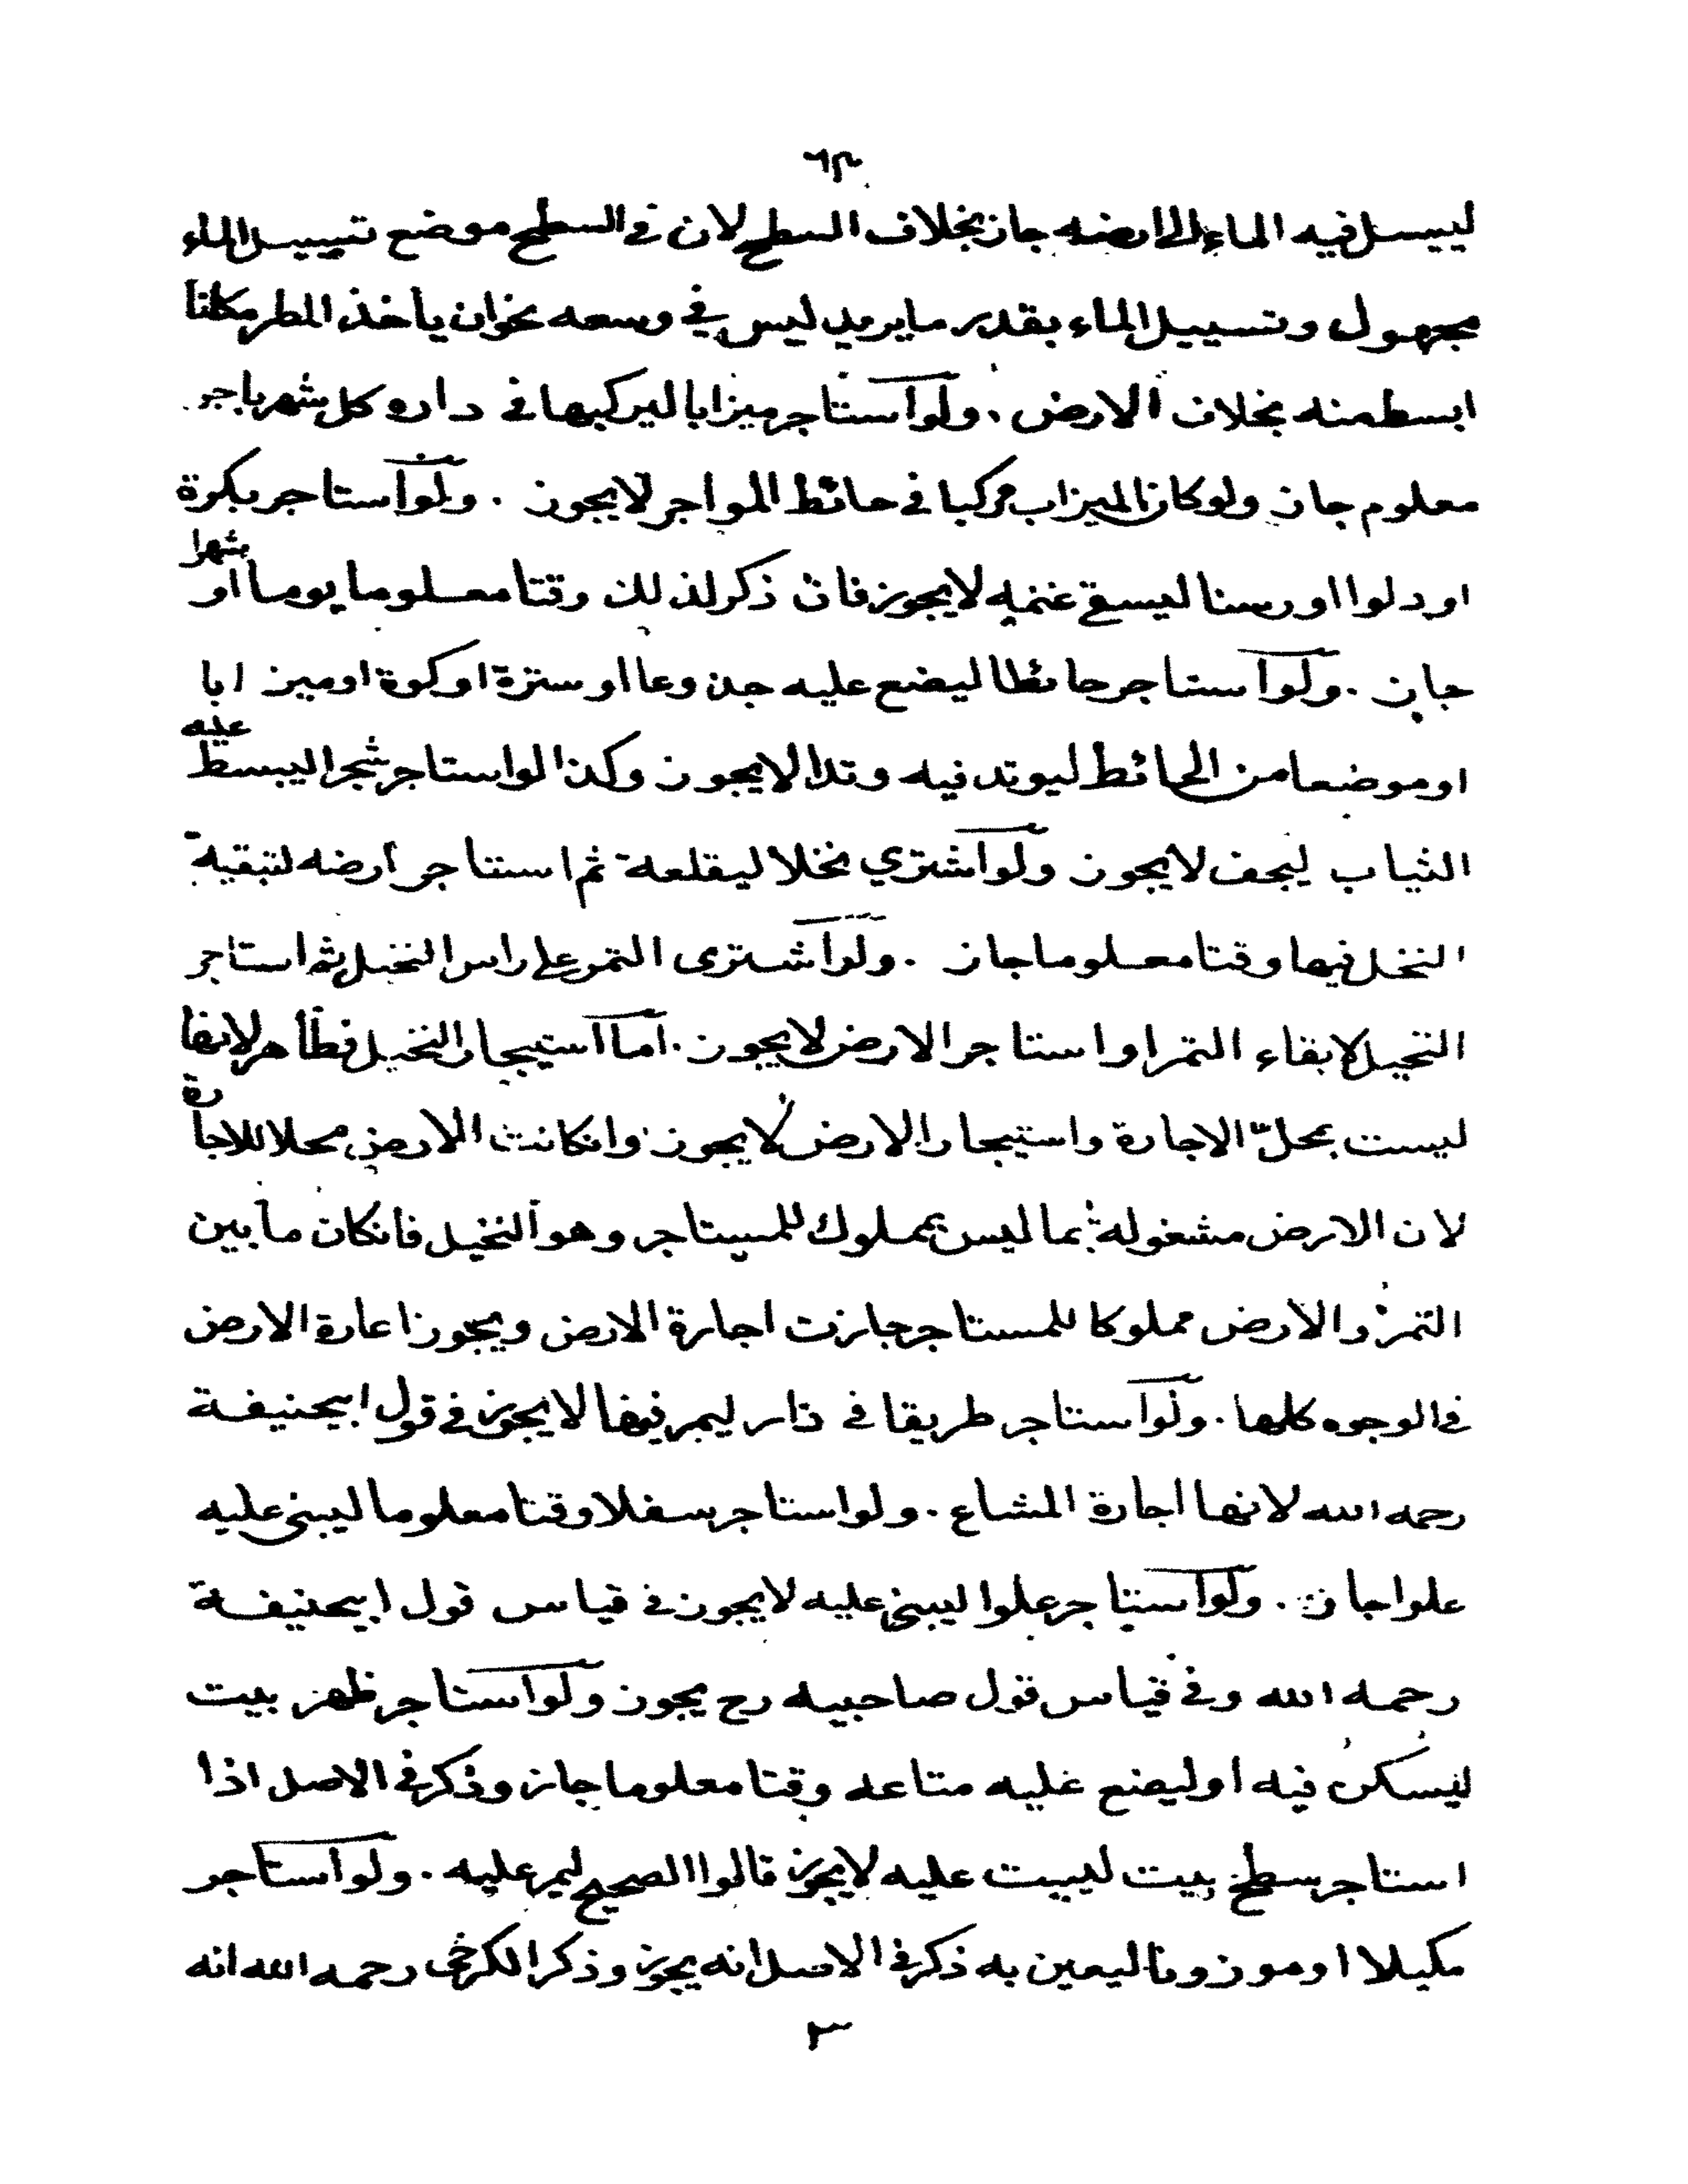 ٦٢
ليسيل فيه الماء الى ارضه جاز بخلاف السطح لان في السطح موضع تسييل الماء
مجهول وتسييل الماء بقدر ما يريد ليس في وسعه نحو ان يأخذ المطر مكانا
ابسط منه بخلاف الارض . ولو استاجر ميزابا ليركبها في داره كل شهر باجر
معلوم جاز ولو كان الميزاب مركبا في حائط المواجر لا يجوز . ولو استاجر بكرة
او دلوا او رسنا ليسقي غنمه لا يجوز فان ذكر لذلك وقتا معلوما يوما او شهرا
جاز . ولو استاجر حائطا ليضع عليه جذوعا او سترة او كوة او ميزابا
او موضعا من الحائط ليوتد فيه وتدا لا يجوز وكذا لو استاجر شجرا ليبسط عليه
الثياب ليجف لا يجوز ولو اشتري نخلا ليقلعة ثم استاجر ارضه لتبقية
النخل فيها وقتا معلوما جاز . ولو اشترى التمر على راس النخيل ثم استاجر
النخيل لابقاء التمر او استاجر الارض لا يجوز . اما استيجار النخيل فظاهر لانها
ليست بمحل الاجارة واستيجار الارض لا يجوز وانكانت الارض محلا للاجارة
لان الارض مشغولة بما ليس بمملوك للمستاجر وهو النخيل فانكان ما بين
التمر والارض مملوكا للمستاجر جازت اجارة الارض ويجوز اعارة الارض
في الوجوه كلها . ولو استاجر طريقا في دار ليمر فيها لا يجوز في قول ابيحنيفة
رحمه الله لانها اجارة المشاع . ولو استاجر سفلا وقتا معلوما ليبنى عليه
علوا جاز . ولو استاجر علوا ليبنى عليه لا يجوز في قياس قول ابيحنيفة
رحمه الله وفي قياس قول صاحبيه رح يجوز ولو استاجر ظهر بيت
ليسكن فيه او ليضع عليه متاعه وقتا معلوما جاز وذكر في الاصل اذا
استاجر سطح بيت ليبيت عليه لا يجوز قالوا الصحيح ليمر عليه . ولو استاجر
مكيلا او موزونا ليعين به ذكر في الاصل انه يجوز وذكر الكرخي رحمه الله انه